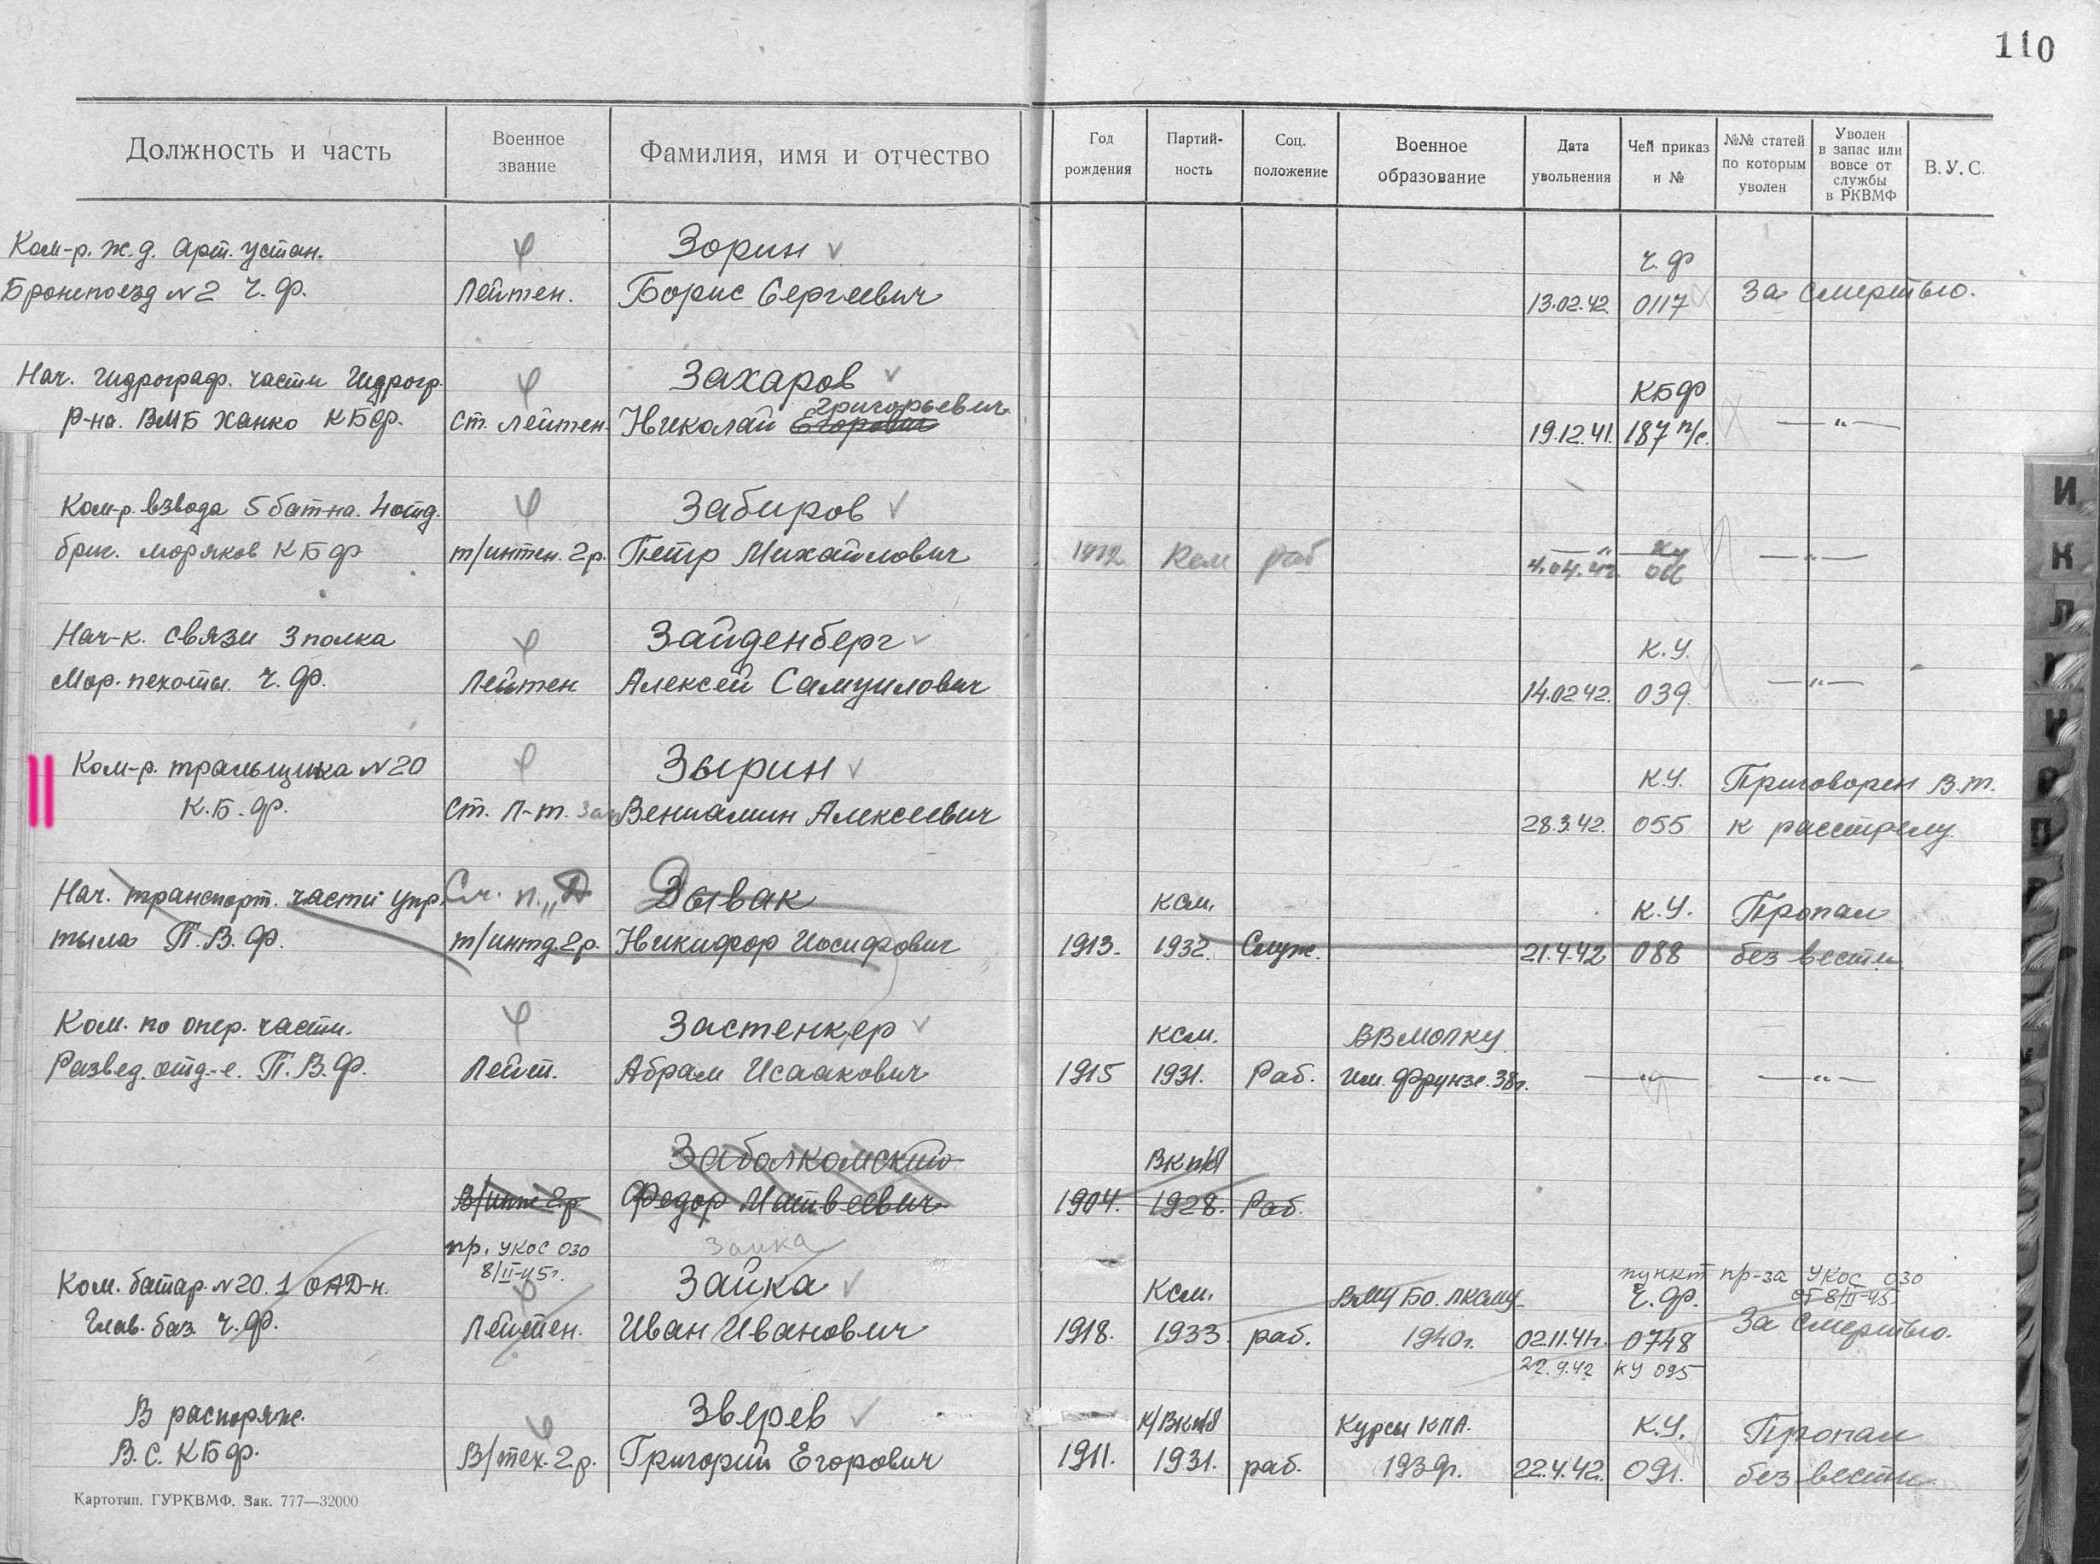 110
Должность и часть
Военное звание
Фамилия, имя и отчество
Год рождения
Партий-ность
Соц. положение
Военное образование
Дата увольнения
Чей приказ и №
№№ статей по которым уволен
Уволен в запас или вовсе от службы в РКВМФ
В. У. С.
Ком-р. ж.д. арт. устан. Зорин Ч.Ф
Бронепоезд №2 Ч.Ф. Лейтен. Борис Сергеевич 13.02.42. 0117 За смертью.
Нач. гидрограф. части Гидрогр. Захаров КБФ
Григорьевич
р-на. ВМБ Ханко КБФ. Ст. лейтен. Николай Егорович 19.12.41. 187 п/с. — " —
Ком-р. взвода 5 бат-на. 4 отд. Забиров
бриг. моряков КБФ т/интен. 2р. Петр Михайлович 1912 Ксм раб 4.04.42. — " —
Нач-к. связи 3 полка Зайденберг К.У.
Мор. пехоты. Ч.Ф. Лейтен Алексей Самуилович 14.02.42. 039. — " —
Ком-р. тральщика №20 Зырин К.У. Приговорен В.т.
К.Б.Ф. Ст. л-т. Зап Вениамин Алексеевич 28.3.42. 055 к расстрелу.
Нач. транспорт. части Упр. См. п. „Д Дывак ксм. К.У. Пропал
тыла П.В.Ф. т/интд 2р. Никифор Иосифович 1913. 1932. Служ. 21.4.42 088 без вести.
Ком. по опер. части. Застенкер ксм. ВВМОЛКУ
Развед. отд-е. П.В.Ф. Лейт. Абрам Исаакович 1915 1931. Раб. им. Фрунзе. 38г. — " — — " —
Заболкомский ВКП/б/
В/инж 2р. Федор Матвеевич 1904. 1928. Раб.
пр. УКОС 030 Заика
8/II-45г. пункт пр-за УКОС 030
Ком. батар. №20. 1 ОАД-н. Зайка Ксм. ВМУ БО. ЛКСМУ Ч.Ф. от 8/II-45
Глав. баз. Ч.Ф. Лейтен. Иван Иванович 1918. 1933. раб. 1940г. 02.11.41г. 0748 За смертью.
22.4.42 КУ 095
В распоряж. Зверев К/ВКП/б Курсы КПА. К.У. Пропал
В.С. КБФ. В/тех. 2р. Григорий Егорович 1911. 1931. раб. 1939г. 22.4.42. 091. без вести
Картотип. ГУРКВМФ. Зак. 777—32000
И
К
Л
Н
П